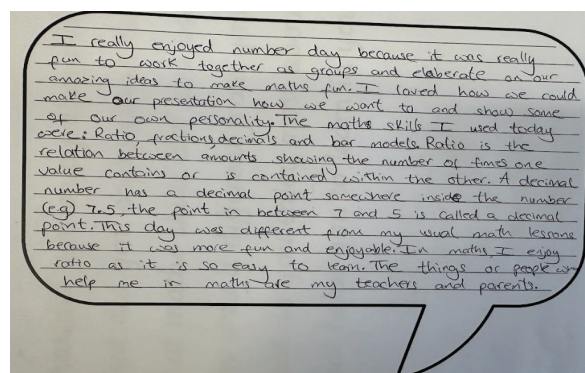 I really enjoyed number day because it was really
fun to work together as groups and elaberate on our
amazing ideas to make maths fun. I loved how we could
make our presentation how we want to and show some
of our own personality. The maths skills I used today
were: Ratio, fractions, decimals and bar models. Ratio is the
relation between amounts showing the number of times one
value contains or is contained within the other. A decimal
number has a decimal point somewhere inside the number
(e.g) 7.5, the point in between 7 and 5 is called a decimal
point. This day was different from my usual math lessons
because it was more fun and enjoyable. In maths, I enjoy
ratio as it is so easy to learn. The things or people
help me in maths are my teachers and parents.